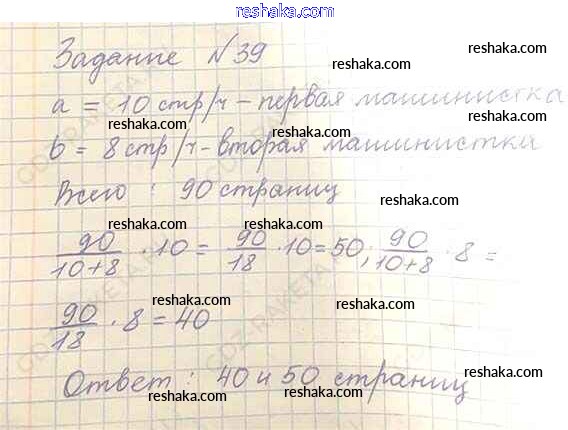 reshaka.com
Задание №39
reshaka.com
reshaka.com
a = 10 стр/ч – первая машинистка
reshaka.com
reshaka.com
b = 8 стр/ч – вторая машинистка
reshaka.com
Всего : 90 страниц
reshaka.com
reshaka.com
90/(10+8) · 10 = 90/18 · 10 = 50; 90/(10+8) · 8 =
reshaka.com
reshaka.com
90/18 · 8 = 40
reshaka.com
reshaka.com
Ответ : 40 и 50 страниц
reshaka.com
reshaka.com
reshaka.com